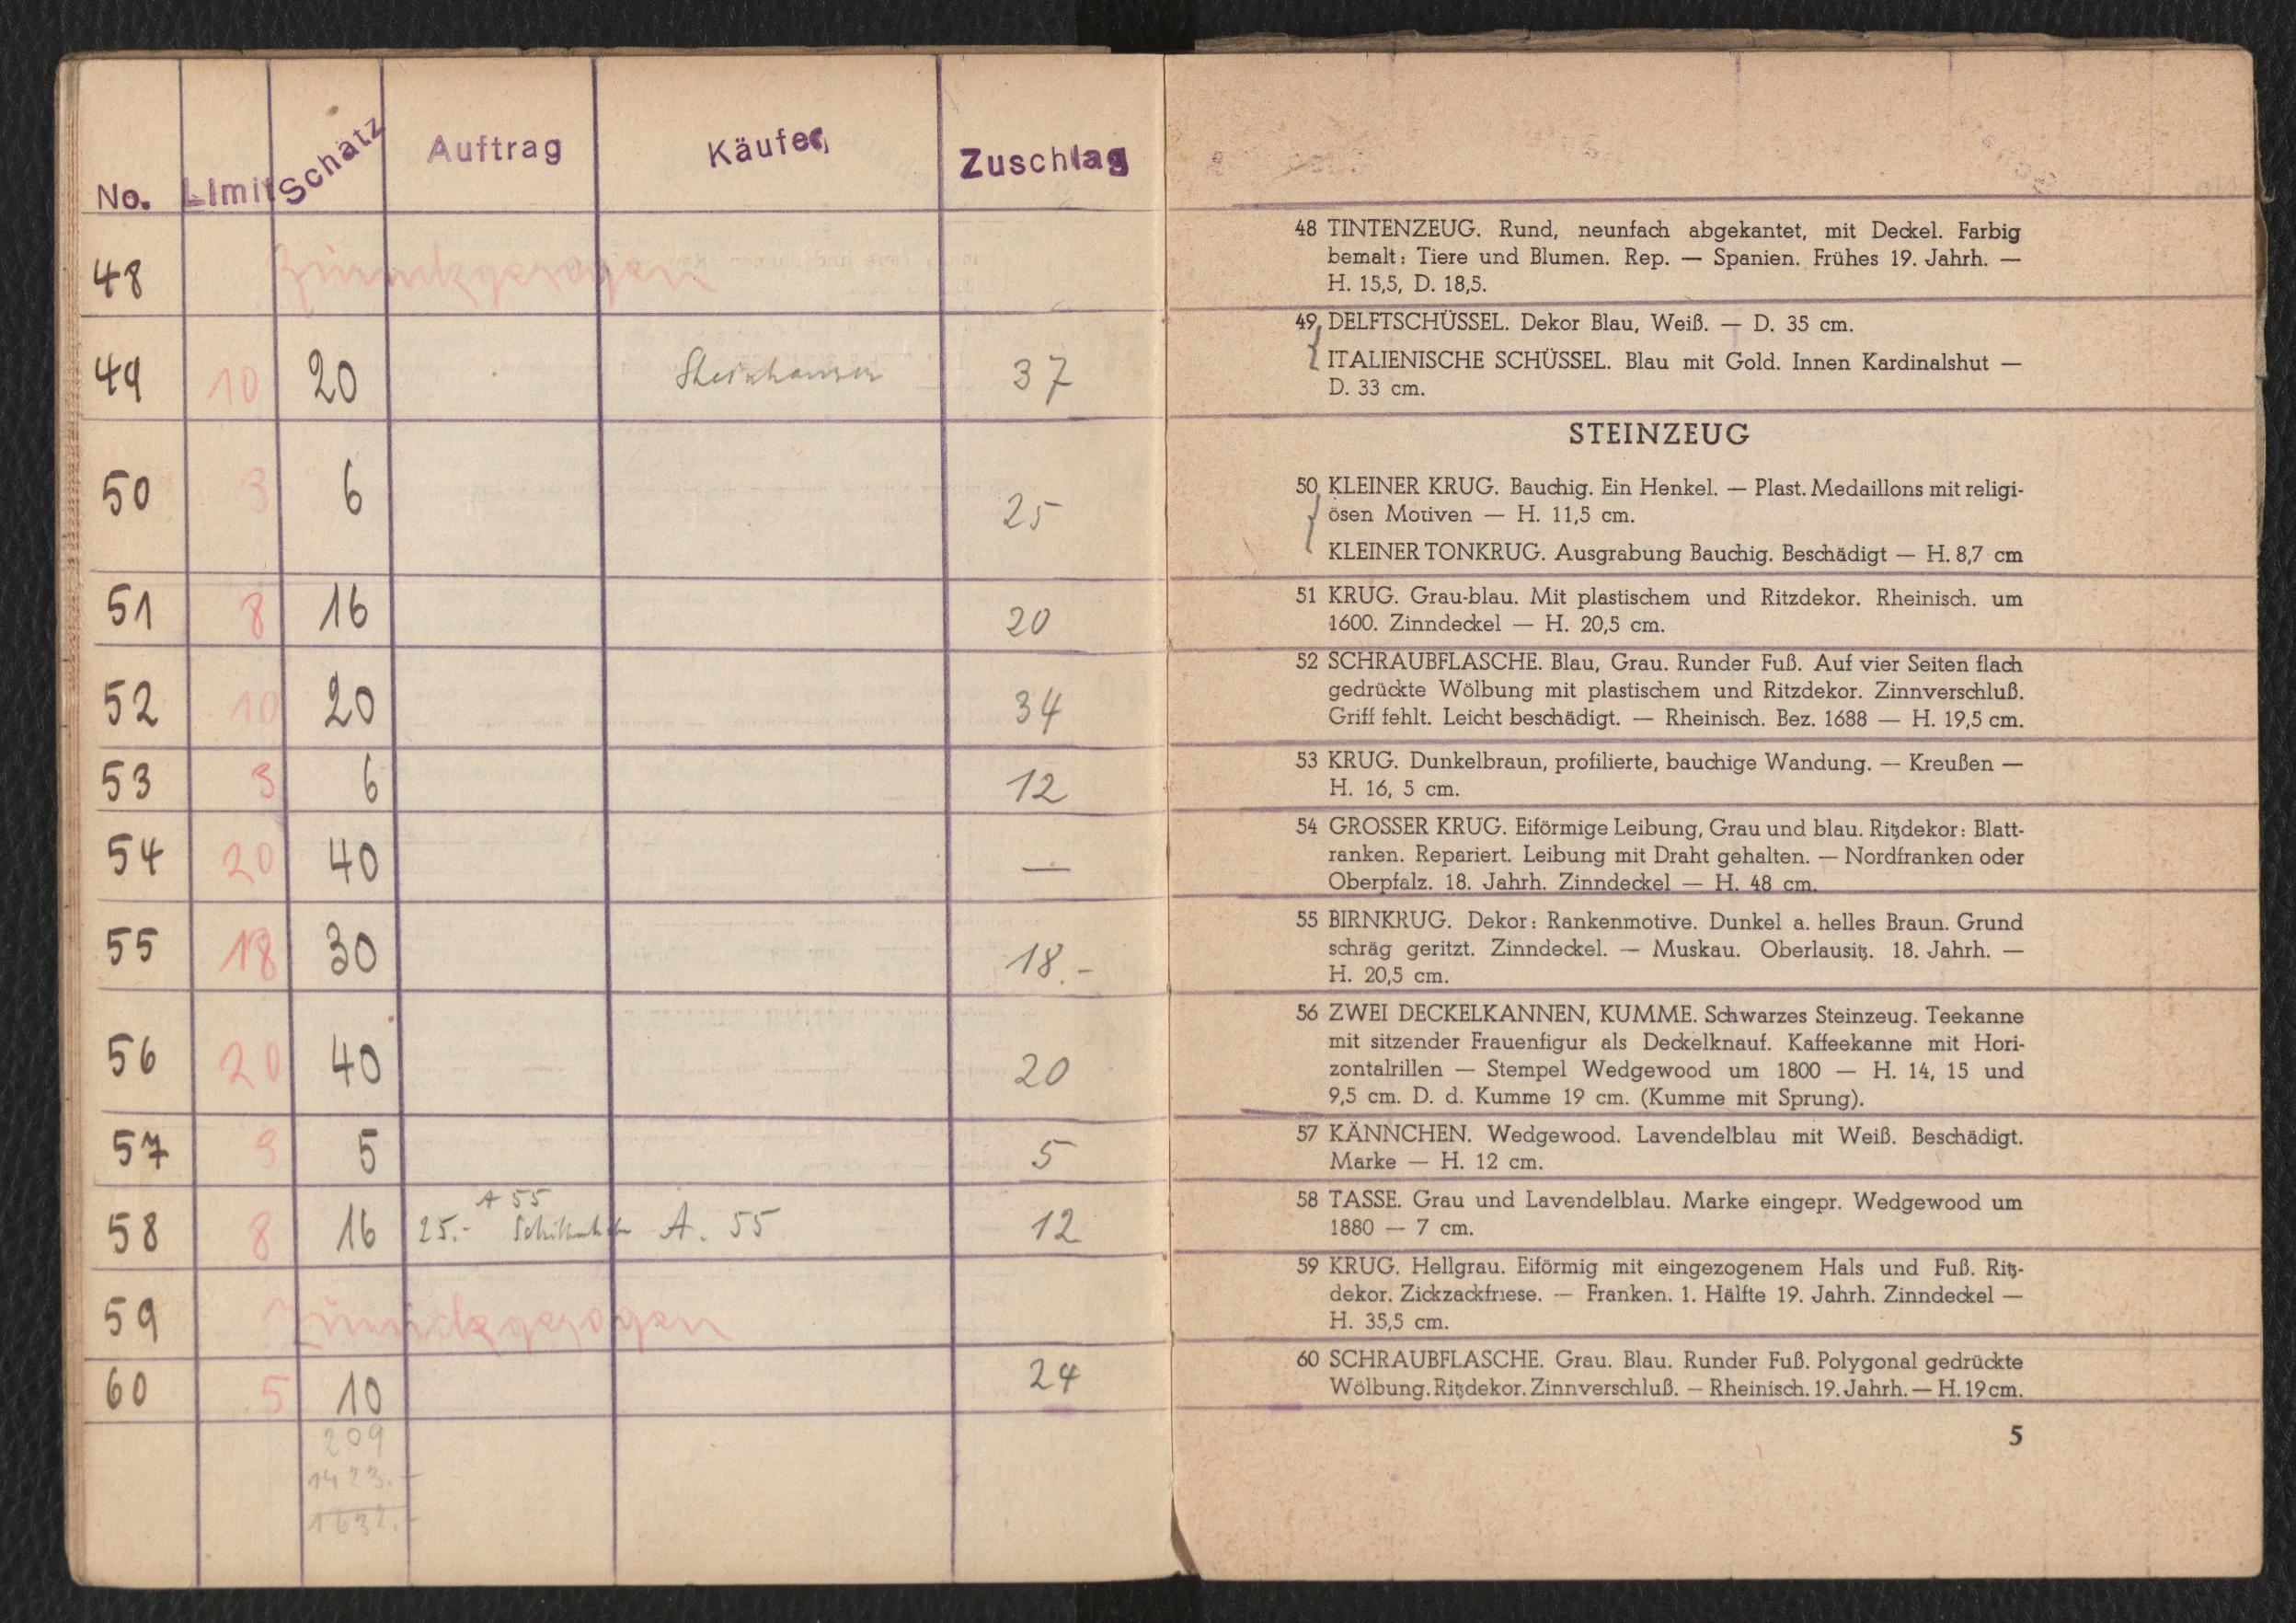 No. Limit Schätz Auftrag Käufer Zuschlag
48 Zurückgezogen
49 10 20 37
50 3 6 25
51 8 16 20
52 10 20 34
53 3 6 12
54 20 40 —
55 18 30 18.-
56 20 40 20
57 3 5 5
A 55
58 8 16 25.- A. 55 12
59 Zurückgezogen
60 5 10 24
209
1423.-
1632.-
48 TINTENZEUG. Rund, neunfach abgekantet, mit Deckel. Farbig
bemalt: Tiere und Blumen. Rep. — Spanien. Frühes 19. Jahrh. —
H. 15,5, D. 18,5.
49 DELFTSCHÜSSEL. Dekor Blau, Weiß. — D. 35 cm.
ITALIENISCHE SCHÜSSEL. Blau mit Gold. Innen Kardinalshut —
D. 33 cm.
STEINZEUG
50 KLEINER KRUG. Bauchig. Ein Henkel. — Plast. Medaillons mit religi-
ösen Motiven — H. 11,5 cm.
KLEINER TONKRUG. Ausgrabung Bauchig. Beschädigt — H. 8,7 cm
51 KRUG. Grau-blau. Mit plastischem und Ritzdekor. Rheinisch. um
1600. Zinndeckel — H. 20,5 cm.
52 SCHRAUBFLASCHE. Blau, Grau. Runder Fuß. Auf vier Seiten flach
gedrückte Wölbung mit plastischem und Ritzdekor. Zinnverschluß.
Griff fehlt. Leicht beschädigt. — Rheinisch. Bez. 1688 — H. 19,5 cm.
53 KRUG. Dunkelbraun, profilierte, bauchige Wandung. — Kreußen —
H. 16, 5 cm.
54 GROSSER KRUG. Eiförmige Leibung, Grau und blau. Ritzdekor: Blatt-
ranken. Repariert. Leibung mit Draht gehalten. — Nordfranken oder
Oberpfalz. 18. Jahrh. Zinndeckel — H. 48 cm.
55 BIRNKRUG. Dekor: Rankenmotive. Dunkel a. helles Braun. Grund
schräg geritzt. Zinndeckel. — Muskau. Oberlausitz. 18. Jahrh. —
H. 20,5 cm.
56 ZWEI DECKELKANNEN, KUMME. Schwarzes Steinzeug. Teekanne
mit sitzender Frauenfigur als Deckelknauf. Kaffeekanne mit Hori-
zontalrillen — Stempel Wedgewood um 1800 — H. 14, 15 und
9,5 cm. D. d. Kumme 19 cm. (Kumme mit Sprung).
57 KÄNNCHEN. Wedgewood. Lavendelblau mit Weiß. Beschädigt.
Marke — H. 12 cm.
58 TASSE. Grau und Lavendelblau. Marke eingepr. Wedgewood um
1880 — 7 cm.
59 KRUG. Hellgrau. Eiförmig mit eingezogenem Hals und Fuß. Ritz-
dekor. Zickzackfriese. — Franken. 1. Hälfte 19. Jahrh. Zinndeckel —
H. 35,5 cm.
60 SCHRAUBFLASCHE. Grau. Blau. Runder Fuß. Polygonal gedrückte
Wölbung. Ritzdekor. Zinnverschluß. — Rheinisch. 19. Jahrh. — H. 19 cm.
5